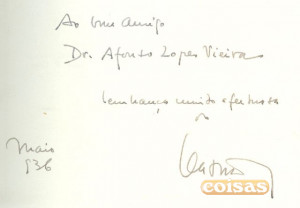 Ao bom amigo
Dr. Afonso Lopes Vieira
lembrança muito afectuosa
Maio
936
coisas